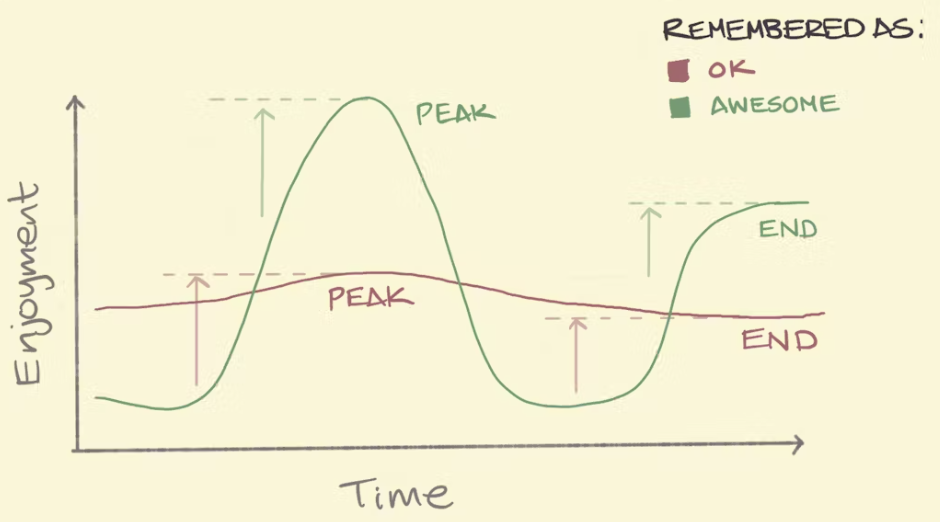 REMEMBERED AS:
OK
AWESOME
PEAK
END
PEAK
END
Enjoyment
Time